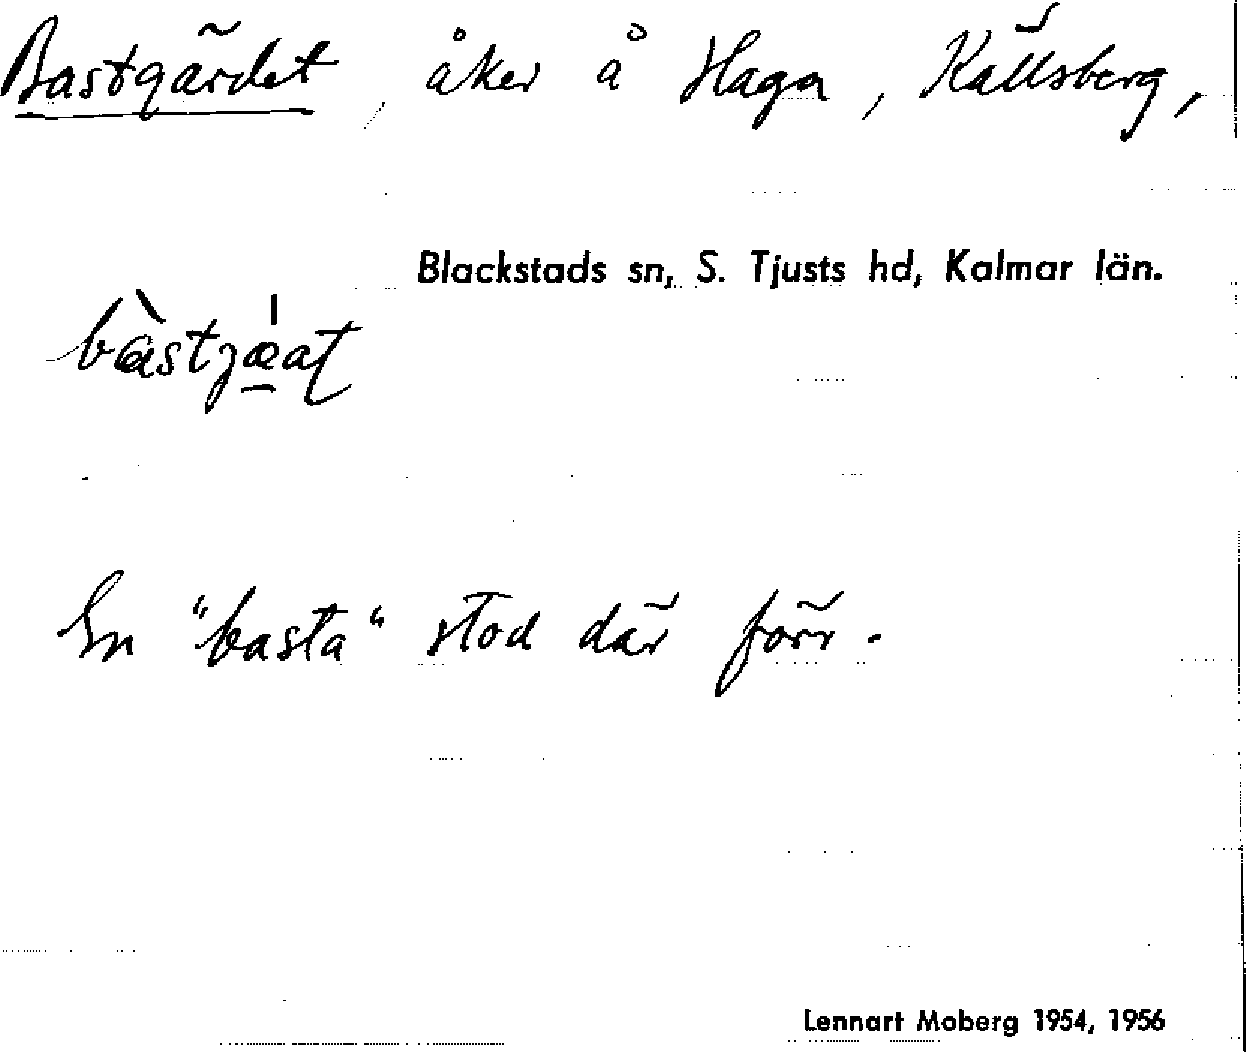 Bastgärdet, åker å Haga, Källsberg,
Blackstads sn, S. Tjusts hd, Kalmar län.
En "basta" stod där förr.
Lennart Moberg 1954, 1956